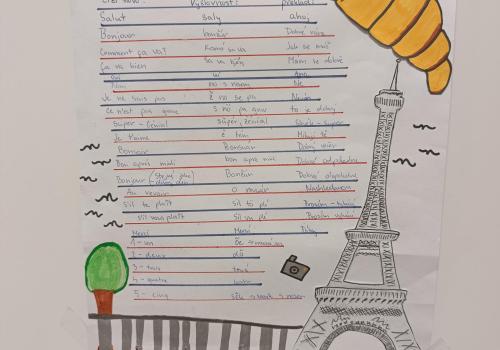 výslovnost: překlad:
Salut šaly ahoj
Bonjour bonžúr Dobrý
Comment ça va? Komo sa va Jak se máš
Ça va bien Sa va bjen Mám se dobře
Oui ui Ano
Non no s nosem Ne
Je ne sais pas Ž nö se pa Nevím
Ce n'est pas grave to je dobrý
Super - Génial supér, ženial
Je t'aime ž tem Miluji tě
Bonsoir Bonsuar Dobrý večer
Bon après midi bon apre midi Dobré odpoledne
Bonjour Bonžúr Dobré odpoledne
Au revoir o revuár Nashledanou
S'il te plaît sil tö plé Prosím - tykání
S'il vous plaît sil vu plé Prosím vykání
Merci Mersí Díky
1 - un
2 - deux dö
3 - trois
4 - quatre
5 - cinq